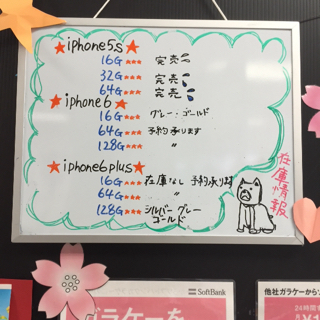 iphone5s
16G 完売
32G 完売
64G 完売
iphone6
16G グレー・ゴールド
64G 予約承ります
128G 〃
iphone6plus
16G 在庫なし 予約承ります
64G 〃
128G シルバー グレー
ゴールド
在庫情報
SoftBank
ガラケーを
他社ガラケーから
24時間